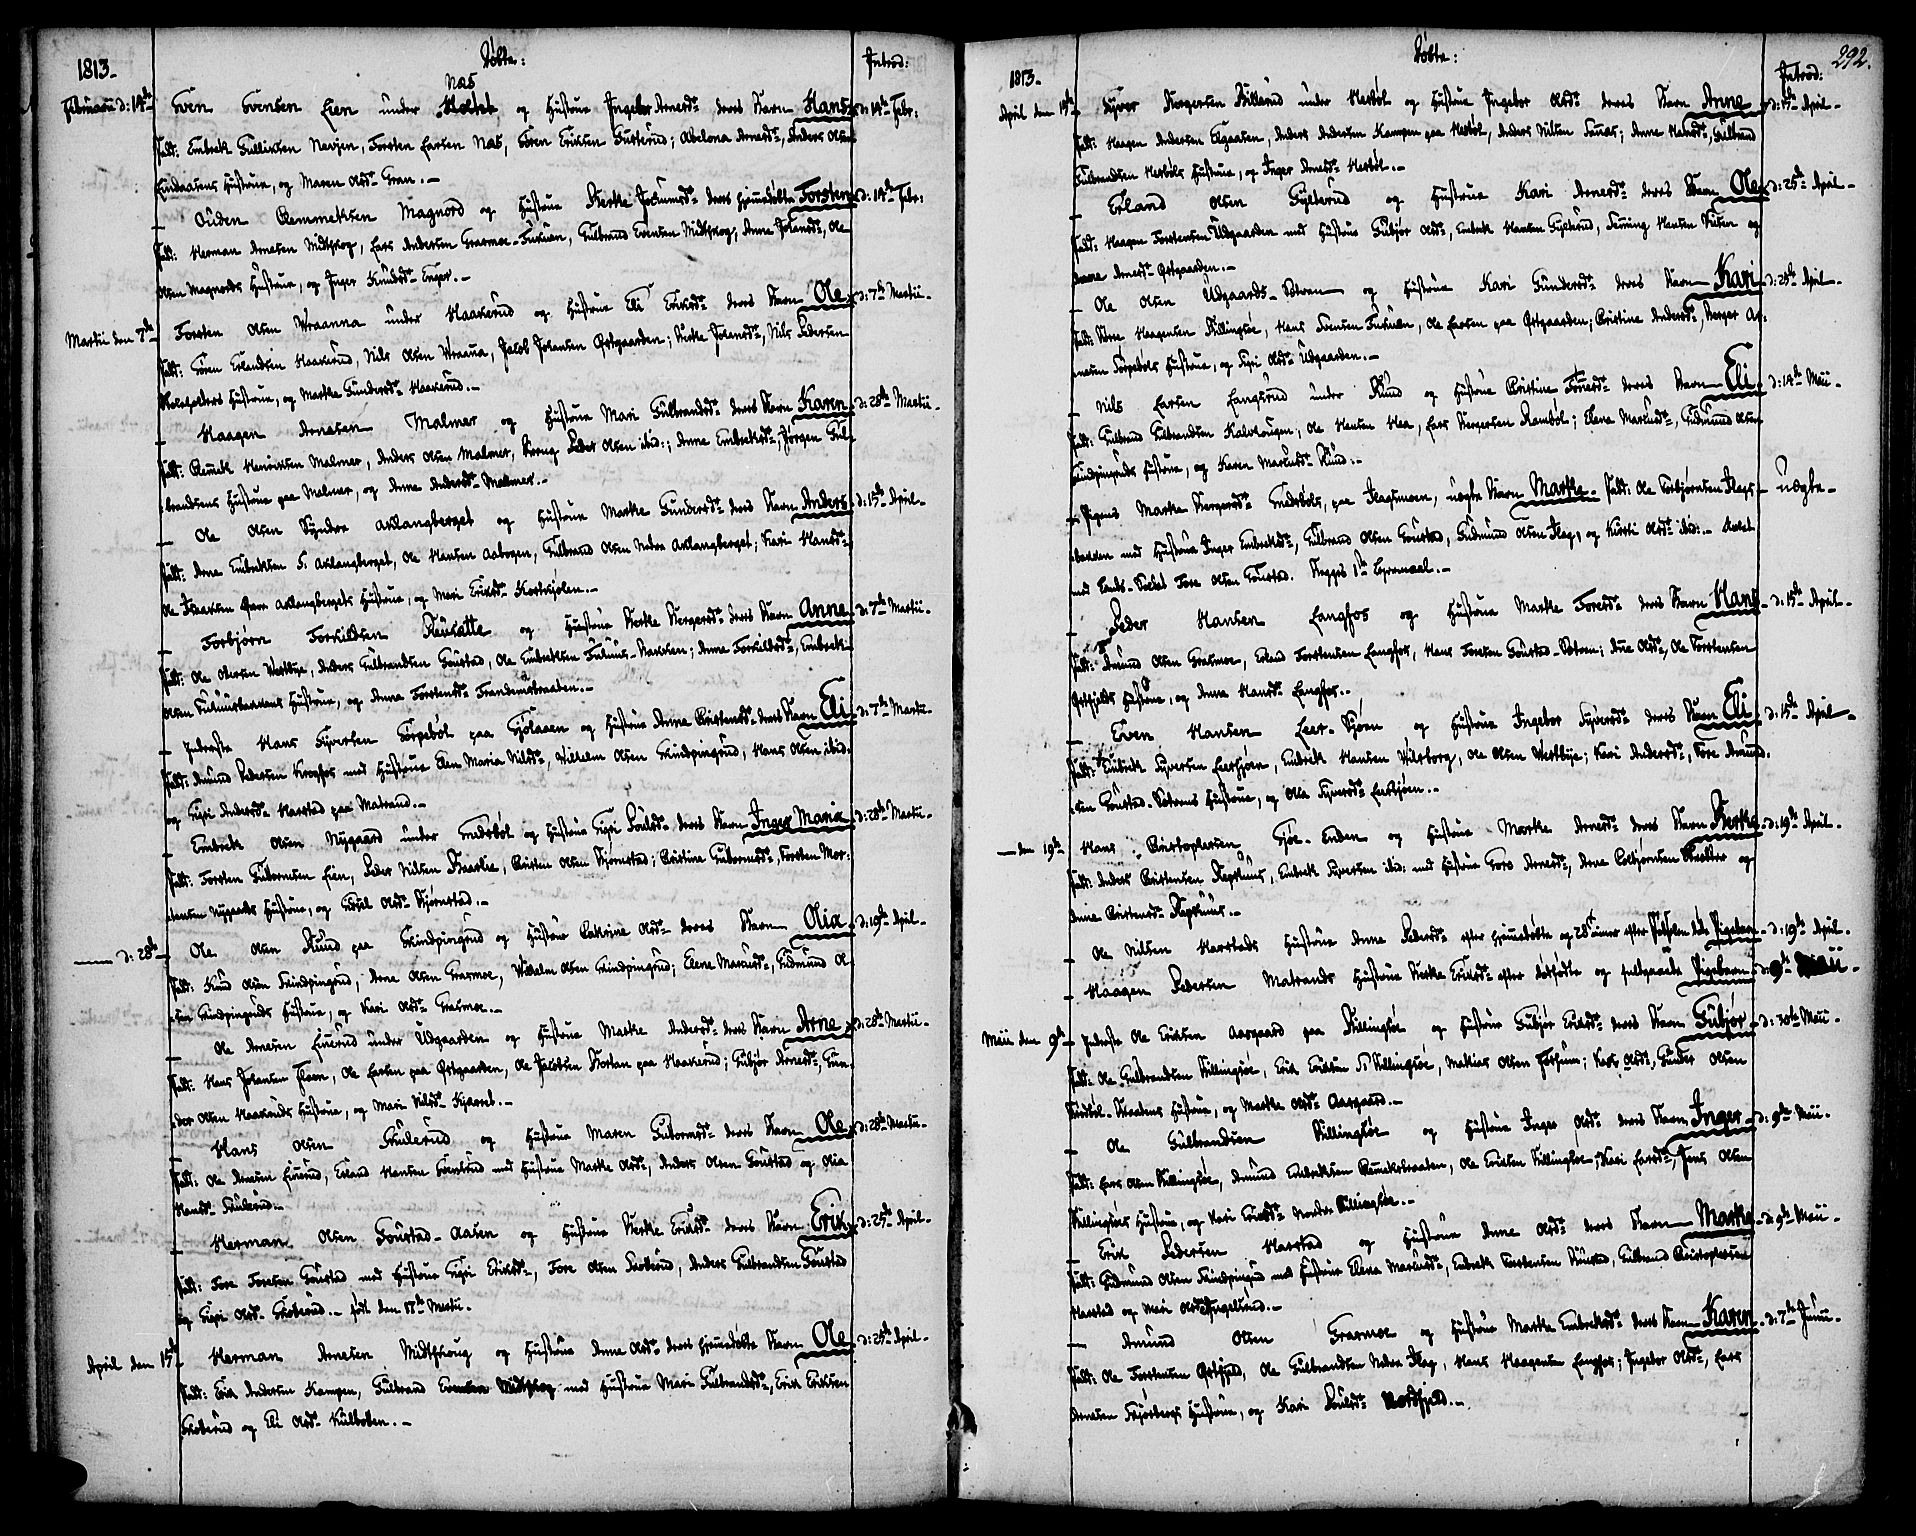 1813.
Døbte:
Introd:
Februarii d: 14de Even Evensen Lien under Næs og Hustrue Ingebor Arnesdr deres Barn Hans d: 14de Febr:
Fadd: Embrek Gulliksen Nævjen, Torsten Larsen Næs, Søren Eriksen ; Abelona Arnesdr, Anders Olsen
Hustrue, og Maren Olsdr Gran.
Auden Clemmetsen Magnord og Hustrue Berte deres hjemmedøbte Torsten d: 14de Febr:
Fadd: Herman Arnesen Midtskog, Lars Andersen Grasmoe, Gulbrand Evensen Midtskog, Anne Johansdr, Ole
Olsen Magnords Hustrue, og Inger Knudsdr Enger.
Martii den 7de Torsten Olsen Vraanna under Haakerud og Hustrue Eli Eriksdr deres Barn Ole d: 7de Martii
Fadd: Søren Erlandsen Haakerud, Nils Olsen Vraana, Jacob Johansen Østgaarden; Berte Johansdr, Nils Pedersen
Hustrue, og Marthe Gundersdr Haakerud.
Haagen Arnesen Malmer og Hustrue Mari Gulbrandsdr deres Barn Karen d: 28de Martii
Fadd: Henriksen Malmer, Anders Olsen Malmer, Peder Olsen ibid:; Anne Embreksdr, Jørgen Gul-
brandsens Hustrue paa Malmer, og Anne Andersdr Malmer.
Ole Olsen Syndre Aklangberget og Hustrue Marthe Gundersdr deres Barn Anders d: 15de April
Fadd: Arne Embreksen S. Aklangberget, Ole Hansen Aabogen, Gulbrand Olsen Nedre Aklangberget; Kari Hansdr,
Ole Aklangbergets Hustrue, og Mari Eriksdr
Torbjørn Torkildsen og Hustrue Berte Bergersdr deres Barn Anne d: 7de Martii
Fadd: Ole Olsen Vestbye, Anders Gulbrandsen Goustad, Ole Embreksen ; Anne Torkildsdr, Embrek
Olsen Hustrue, og Anne Torstensdr
Inderste Hans Syversen Sørpebøl paa og Hustrue Anne Christensdr deres Barn Eli d: 7de Martii
Fadd: Amund Pedersen Krogfos med Hustrue Elen Maria Nilsdr, Wilhelm Olsen Grindpingrud, Hans Olsen ibid:
og Sigri Andersdr Harstad paa Matrand.
Embrek Olsen Nygaard under og Hustrue Sigri Poulsdr deres Barn Inger Maria d: 28de Martii
Fadd: Torsten Gutormsen Lien, Peder Nilsen , Christen Olsen Tjernstad; Christine Gutormsdr, Torsten Mor-
tensen Nygaards Hustrue, og Sidsel Olsdr Tjernstad.
d: 28de Ole Olsen Rund paa Grindpingrud og Hustrue Cathrine Olsdr deres Barn Olia d: 19de April
Fadd: Knud Olsen Grindpingrud, Arne Olsen Grasmoe, Wilhelm Olsen Grindpingrud; Elene Mariusdr, Gudmund Ol-
sen Grindpingruds Hustrue, og Kari Olsdr Grasmoe.
Ole Arnesen Eierud under Udgaarden og Hustrue Marthe Andersdr deres Barn Arne d: 28de Martii
Fadd: Hans Johansen , Ole Larsen paa Østgaarden, Ole Jacobsen paa Haakerud; Gubjør Arnesdr, Gun-
der Olsen Haakeruds Hustrue, og Mari Nilsdr Kjærret.
Hans Olsen Skulerud og Hustrue Maren Gutormsdr deres Barn Ole d: 28de Martii
Fadd: Ole Arnesen Eierud, Erland Hansen med Hustrue Marthe Olsdr, Anders Olsen Goustad og Olia
Hansdr Skulerud.
Herman Olsen Goustad-Aasen og Hustrue Berte Eriksdr deres Barn Erik d: 25de April
Fadd: Tore Toresen Goustad med Hustrue Sigri Eriksdr, Tore Olsen Skoterud, Anders Gulbrandsen Goustad
og Sigri Olsdr Skoterud. født den 17de Martii.
April den 15de Herman Arnesen Midtskoug og Hustrue Anne Olsdr deres hjemmedøbte Barn Ole d: 25de April
Fadd: Erik Andersen Kampen, Gulbrand Evensen Midtskog med Hustrue Mari Gulbrandsdr, Erik Eriksen
Skoterud og Eli Olsdr Kulbolen.
292.
1813.
Døbte:
Introd:
April den 15de Syver Bergersen Billerud under Hesbøl og Hustrue Ingebor Olsdr deres Barn Anne d: 15de April
Fadd: Haagen Andersen Elgaasen, Anders Andersen Kampen paa Hesbøl, Anders Nilsen ; Anne Hansdr, Gulbrand
Gulbrandsen Hesbøls Hustrue, og Inger Arnesdr Hesbøl.
Erland Olsen Gylterud og Hustrue Kari Arnesdr deres Barn Ole d: 25de April
Fadd: Haagen Torstensen Udgaarden med Hustrue Gubjør Olsdr, Embrek Hansen Gylterud, Hansen og
Arnesdr Østgaarden.
Ole Olsen Udgaards-Sætren og Hustrue Kari Gundersdr deres Barn Kari d: 25de April
Fadd: Haagensen Killingsøe, Hans Svensen , Ole Larsen paa Østgaarden; Christine Andersdr, Berger Ar-
nesen Sørpebøls Hustrue, og Sigri Olsdr Udgaarden.
Nils Larsen Langsrud under Rund og Hustrue Christine deres Barn Eli d: 14de Maii
Fadd: Gulbrand Gulbrandsen Kalvhougen, Ole Hansen Moe, Lars Bergersen ; Elene Mariusdr, Gudmund Olsen
Grindpingruds Hustrue, og Karen Mariusdr Rund.
Pigens Marthe Bergersdr , paa Flagsmoen, uægte Barn Marthe. Fadd: Ole Torbjørnsen Flags- uægte
bakken med Hustrue Inger Embreksdr, Gulbrand Olsen Goustad, Gudmund Olsen Flag, og Kirsti Olsdr ibid:
med Land-Soldat Tore Olsen Goustad. Begges 1te Leyermaal.
Peder Hansen Langfos og Hustrue Marthe Toresdr deres Barn Hans d: 15de April
Fadd: Amund Olsen Grasmoe, Erland Torstensen Langfos, Hans Toresen Goustad-Sætren; Olsdr, Ole Torstensen
Østfjelds Hustrue, og Anne Hansdr Langfos.
Even Hansen Leer-Tjøen og Hustrue Ingebor Syversdr deres Barn Eli d: 15de April
Fadd: Embrek Syversen Leertjøen, Embrek Hansen Wilsborg, Ole Olsen Vestbye; Kari Andersdr, Tore Amund-
sen Goustad-Sætrens Hustrue, og Olia Syversdr Leertjøen.
den 19de Hans Christophersen Gjøe-Enden og Hustrue Marthe Arnesdr deres Barn Berthe d: 19de April
Fadd: Anders Christensen , Embrek Syversen ibid: med Hustrue Goro Arnesdr, Arne Colbjørnsen og
Anne Christensdr
Ole Nilsen Harstads Hustrue Anne Pedersdr efter hjemmedøbte og 28 timer efter Fødselen døde Pigebarn d: 19de April
Haagen Pedersen Matrands Hustrue Berthe Eriksdr efter dødfødte og Pigebarn d: 9de Maii
Maii den 9de Inderste Ole Eriksen Aasgaard paa Killingsøe og Hustrue Gubjør Eriksdr deres Barn Gubjør d: 30de Maii
Fadd: Ole Gulbrandsen Killingsøe, Erik Eriksen N Killingsøe, Mathias Olsen ; Olsdr, Gunder Olsen
Hustrue, og Marthe Olsdr Aasgaard.
Ole Gulbrandsen Killingsøe og Hustrue Inger Olsdr deres Barn Inger d: 9de Maii
Fadd: Lars Olsen Killingsøe, Amund Embreksen , Ole Eriksen Killingsøe; Kari Larsdr, Jens Olsen
Killingsøes Hustrue, og Kari Eriksdr Nordre Killingsøe.
Erik Pedersen Harstad og Hustrue Anne Olsdr deres Barn Marthe d: 9de Maii
Fadd: Gudmund Olsen Grindpingrud med Hustrue Elena Mariusdr, Embrek Torstensen , Gulbrand Christophersen
Harstad og Mari Olsdr Ingelsrud.
Amund Olsen Grasmoe og Hustrue Marthe Embreksdr deres Barn Karen d: 7de Junii
Fadd: Ole Torstensen Østfjeld, Ole Gulbrandsen Nedre Flag, Hans Haagensen Langfos; Ingebor Olsdr, Lars
Arnesen Skjørbergs Hustrue, og Kari Poulsdr Nordfjeld.